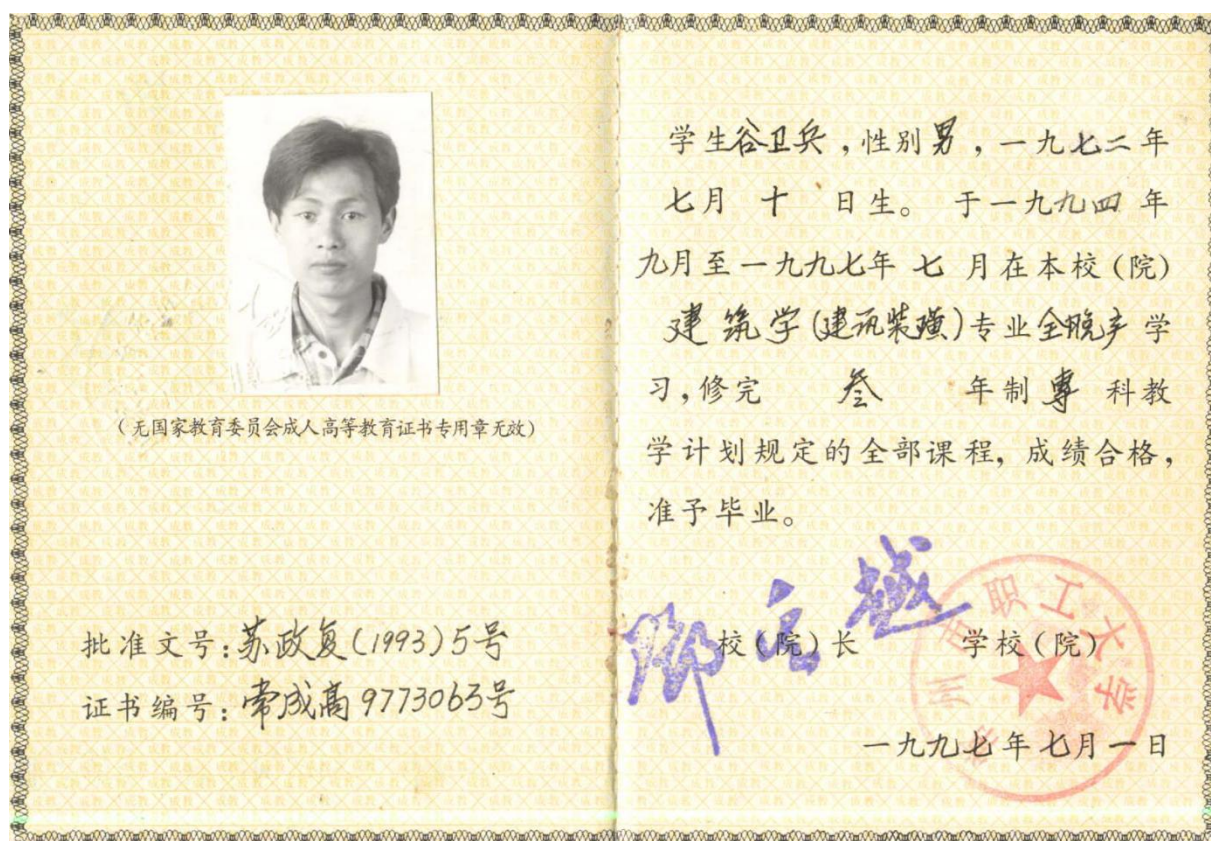 (无国家教育委员会成人高等教育证书专用章无效)
批准文号:苏政复(1993)5号
证书编号:常成高9773063号
学生谷卫兵,性别男,一九七二年
七月 十 日生。于一九九四年
九月至一九九七年 七 月在本校(院)
建筑学(建筑装璜)专业全脱产学
习,修完 叁 年制 专 科教
学计划规定的全部课程,成绩合格,
准予毕业。
校(院)长 学校(院)
州市职工大学
一九九七年七月一日